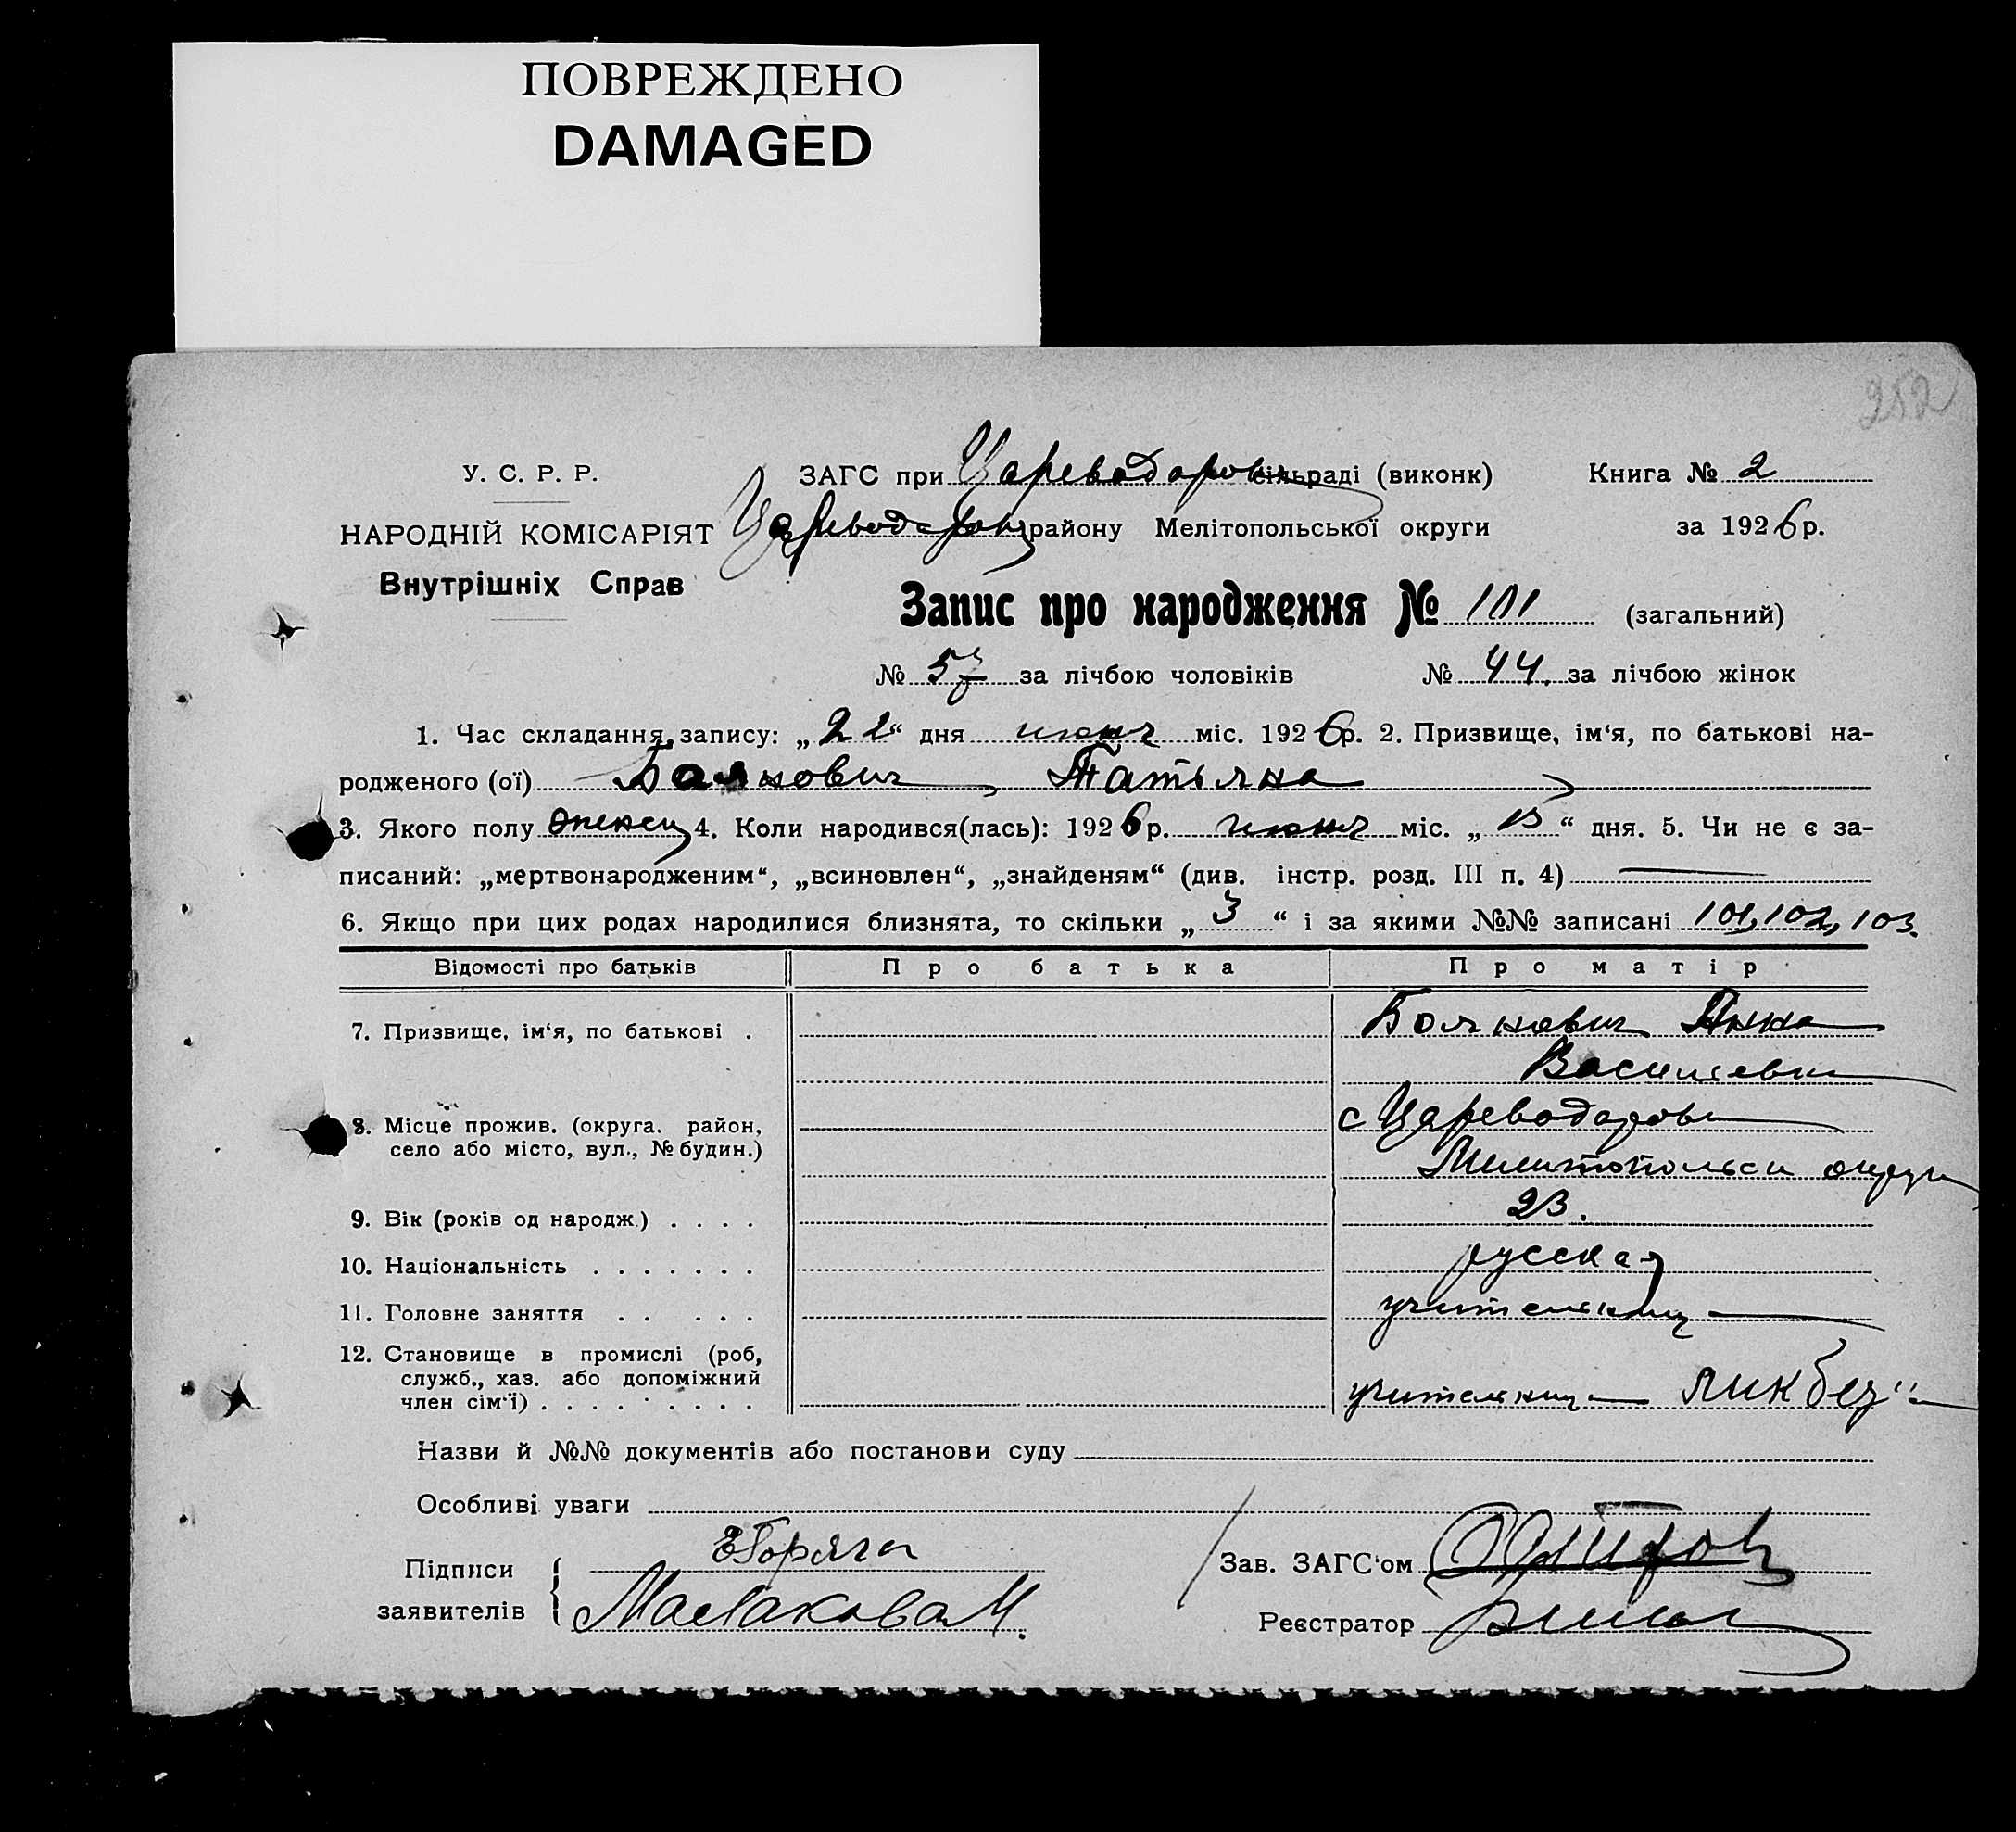 ПОВРЕЖДЕНО
DAMAGED
252
У. С. Р. Р.
НАРОДНІЙ КОМІСАРІЯТ
Внутрішніх Справ
ЗАГС при Цареводаровск сільраді (виконк)
Цареводаровск району Мелітопольської округи
Книга № 2
за 1926 р.
Запис про народження № 101 (загальний)
№ 57 за лічбою чоловіків № 44. за лічбою жінок
1. Час складання запису: „22“ дня июня міс. 1926 р. 2. Призвище, ім‘я, по батькові на-
родженого (ої) Баянович Татьяна
3. Якого полу женск 4. Коли народився(лась): 1926 р. июня міс. „15“ дня. 5. Чи не є за-
писаний: „мертвонародженим“, „всиновлен“, „знайденям“ (див. інстр. розд. III п. 4) —
6. Якщо при цих родах народилися близнята, то скільки „3“ і за якими №№ записані 101, 102, 103.
Відомості про батьків Про батька Про матір
7. Призвище, ім‘я, по батькові . Баянович Анна
Васильевна
8. Місце прожив. (округа. район, с Цареводаровка
село або місто, вул., № будин.) Мелитопольск округи
9. Вік (років од народж.) . . . . 23.
10. Національність . . . . . . . русская
11. Головне заняття . . . . . учительница
12. Становище в промислі (роб,
служб., хаз. або допоміжний
член сім‘ї) . . . . . . . . . учительница ликбеза
Назви й №№ документів або постанови суду
Особливі уваги
Підписи
заявителів
Маслакова М.
Зав. ЗАГС‘ом
Реєстратор